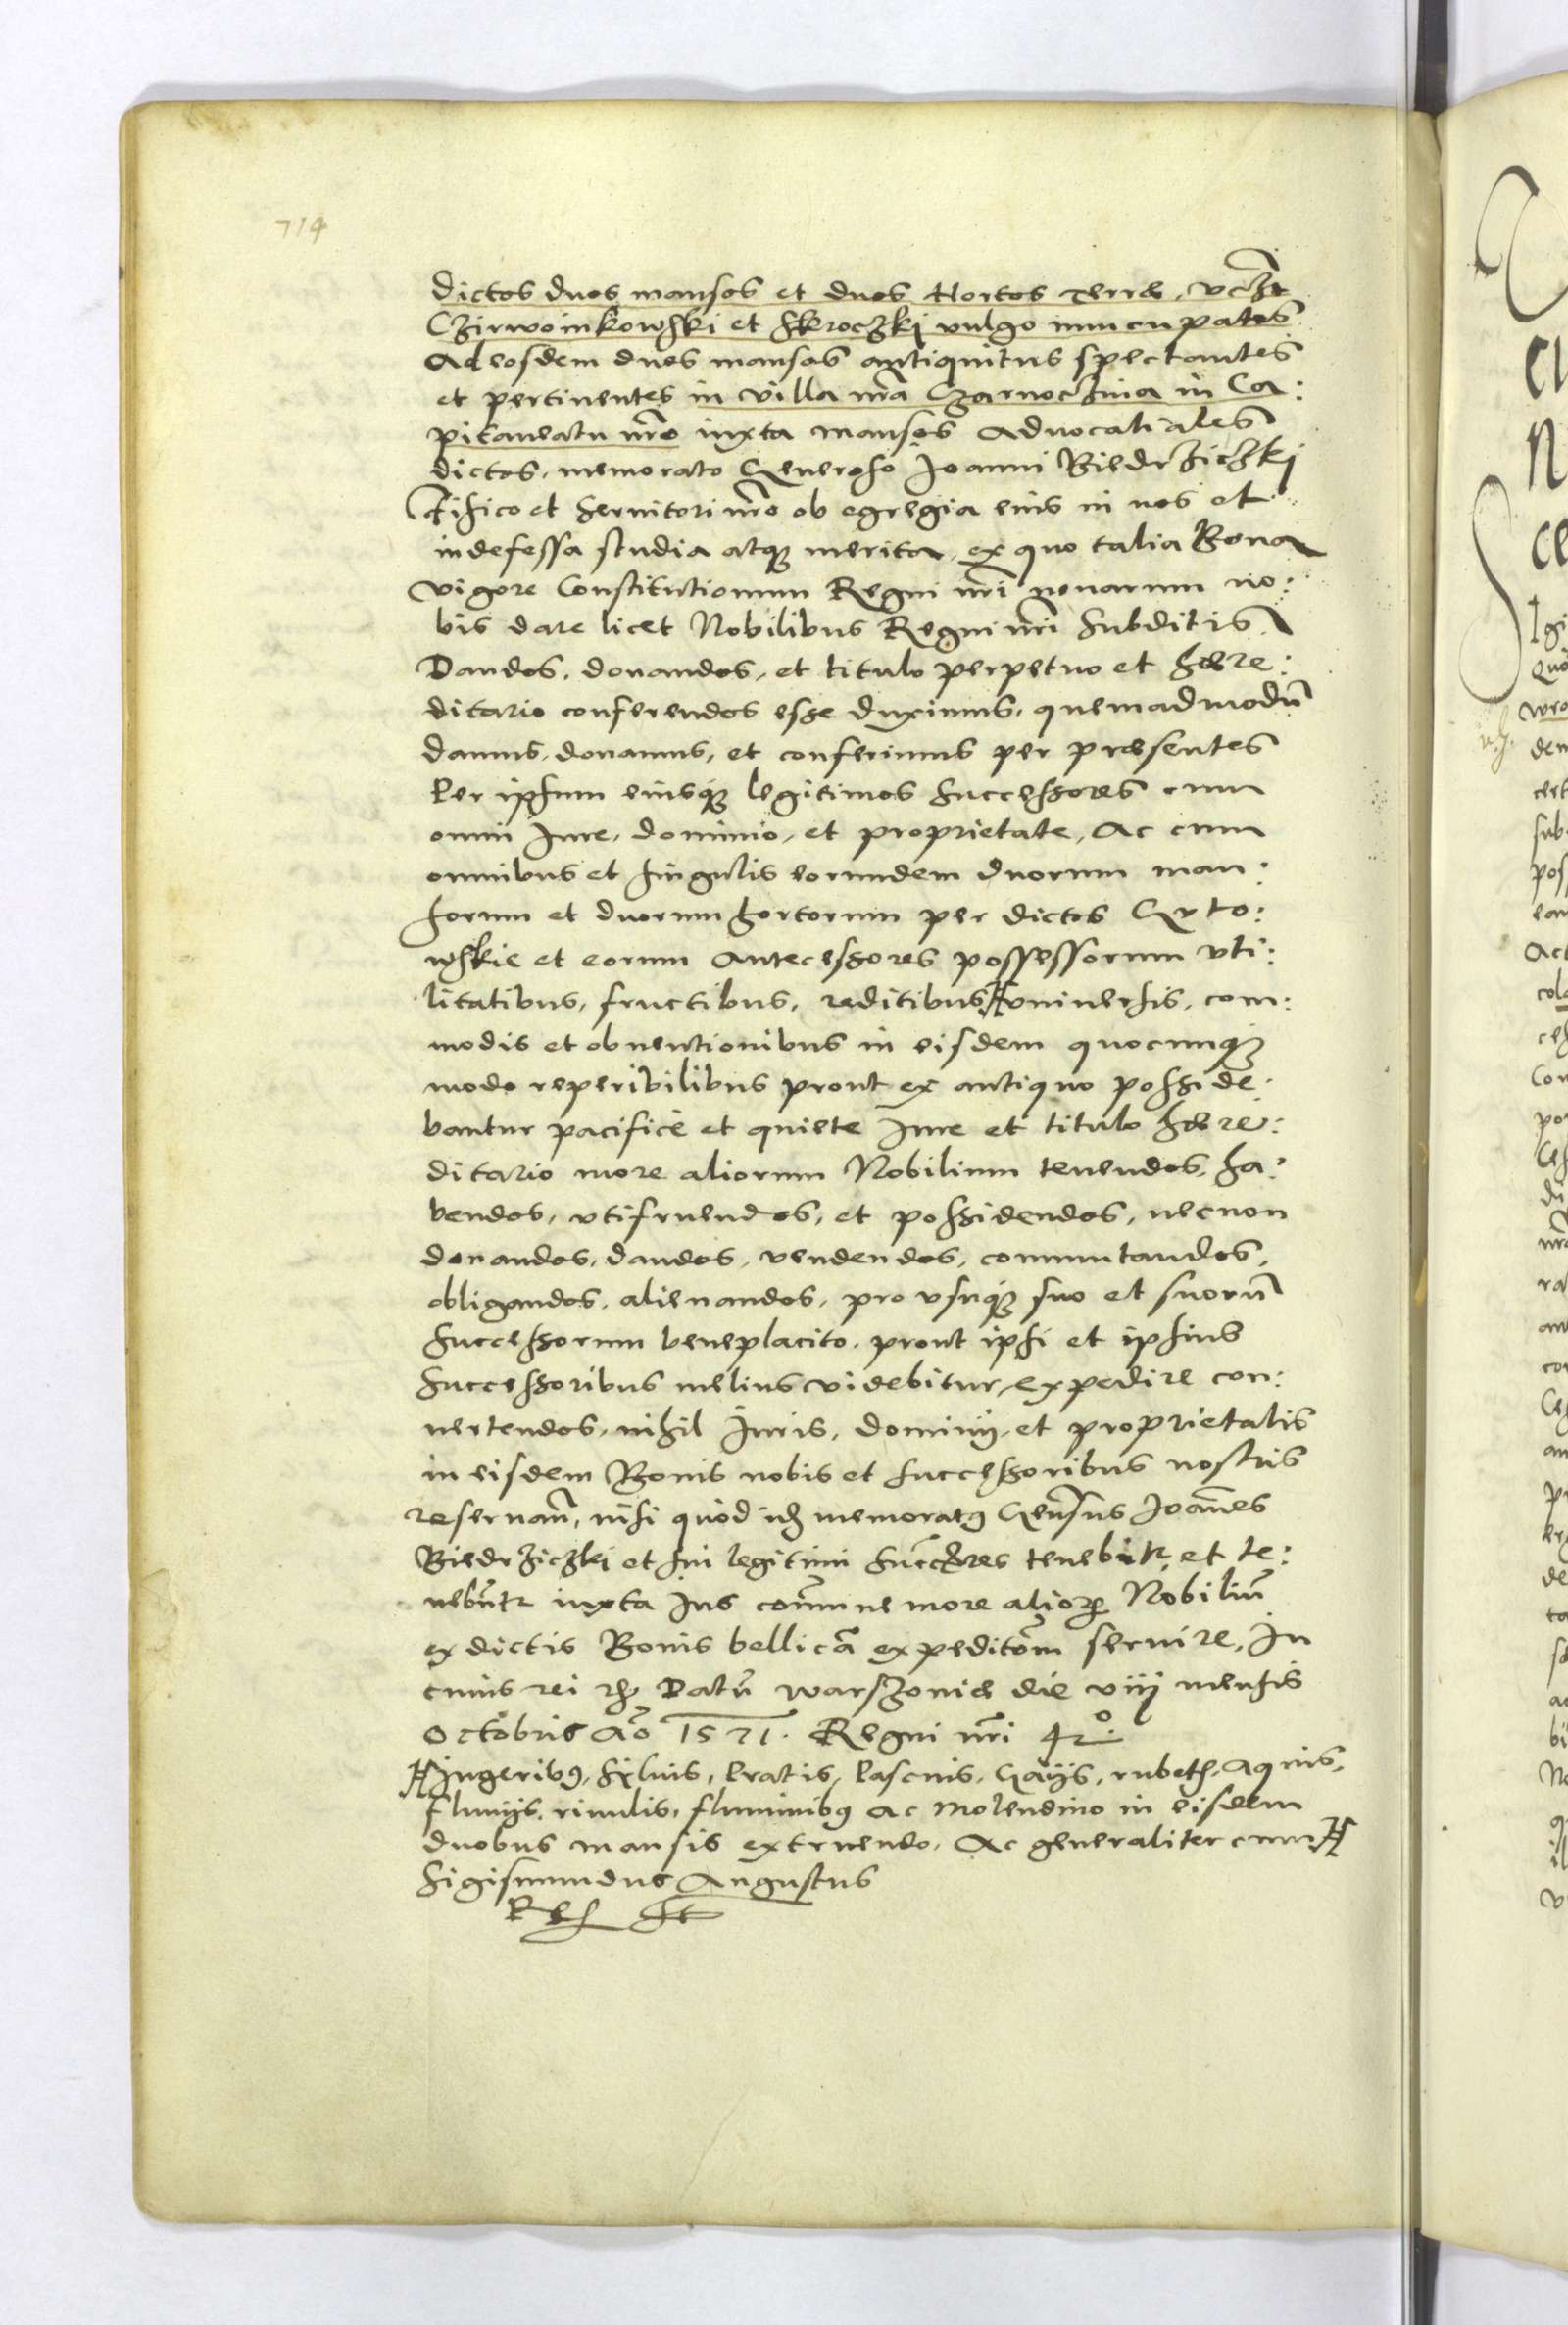 714
dictos duos mansos et duos Hortos Terræ,
Czirwoinkowski et Skroczki vulgo nuncupatos
Ad eosdem duos mansos antiquitus spectantes
et pertinentes in villa nr̃a Czarnochnia in Ca:
pitaneatu nr̃o iuxta mansos Aduocatiales
dictos, memorato Generoso Joanni Biedrzichki
et Seruitori nr̃o ob egregia eius in nos et
indefessa studia atq3 merita, ex quo talia Bona
vigore Constitutionum Regni nr̃i nouarum no:
bis dare licet Nobilibus Regni nr̃i Subditis
Dandos, donandos, et titulo perpetuo et hære:
ditario conferendos esse duximus, quemadmodũ
damus, donamus, et conferimus per præsentes
Per ipsum eiusq3 legitimos successores cum
omni Iure, dominio, et proprietate, Ac cum
omnibus et singulis eorundem duorum man:
sorum et duorum hortorum per dictos Gyto:
wskie et eorum Antecessores possessorum vti:
litatibus, fructibus, reditibus # vniuersis, com:
modis et obuentionibus in eisdem quocunq3
modo reperibilibus prout ex antiquo posside:
bantur pacificè et quiete Iure et titulo hære:
ditario more aliorum Nobilium tenendos, ha:
bendos, vtifruendos, et possidendos, necnon
donandos, dandos, vendendos, commutandos,
obligandos, alienandos, pro vsuq3 suo et suorũ
Successorum beneplacito, prout ipsi et ipsius
Successoribus melius videbitur expedire con:
uertendos, nihil Iuris, dominij, et proprietatis
in eisdem Bonis nobis et successoribus nostris
reseruan̄, nisi quòd memoratq Joan̄es
Biedrzichki et sui legitimi tenebitr et te:
nebũtr iuxta Ius com̃une more alior Nobiliũ
ex dictis Bonis bellicã expeditõm seruire, In
cuius rei Datũ Warszouiæ die viij mensis
Octobris Aõ 1571. Regni nr̃i 42o
# Iugeribq, syluis, Pratis, Pascuis, Gaijs, rubetis, Aquis,
fluuijs, riuulis, fluminibq Ac Molendino in eisdem
duobus mansis extruendo, Ac generaliter cum #
Sigismundus Augustus
Rex